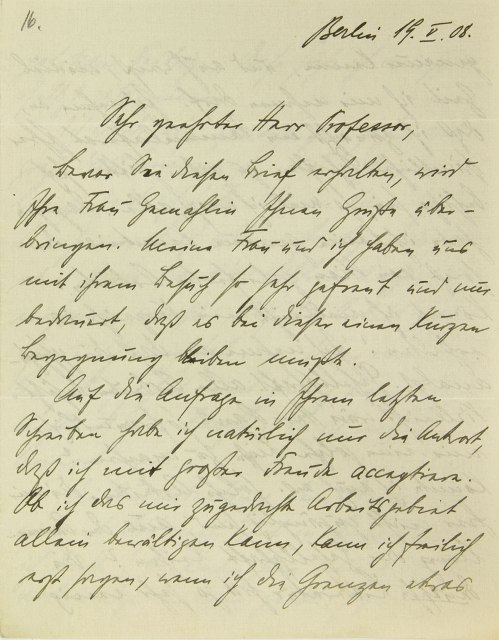 16.
Berlin 19. V. 08.
Sehr geehrter Herr Professor,
bevor Sie diesen Brief erhalten, wird
Ihre Frau Gemahlin Ihnen Grüße über-
bringen. Meine Frau und ich haben uns
mit ihrem Besuch so sehr gefreut und nur
bedauert, daß es bei dieser einen kurzen
Begegnung bleiben mußte.
Auf die Anfrage in Ihrem letzten
Schreiben habe ich natürlich nur die Antwort,
daß ich mit großer Freude acceptiere.
Ob ich das mir zugedachte Arbeitsgebiet
allein bewältigen kann, kann ich freilich
erst sagen, wenn ich die Grenzen etwas